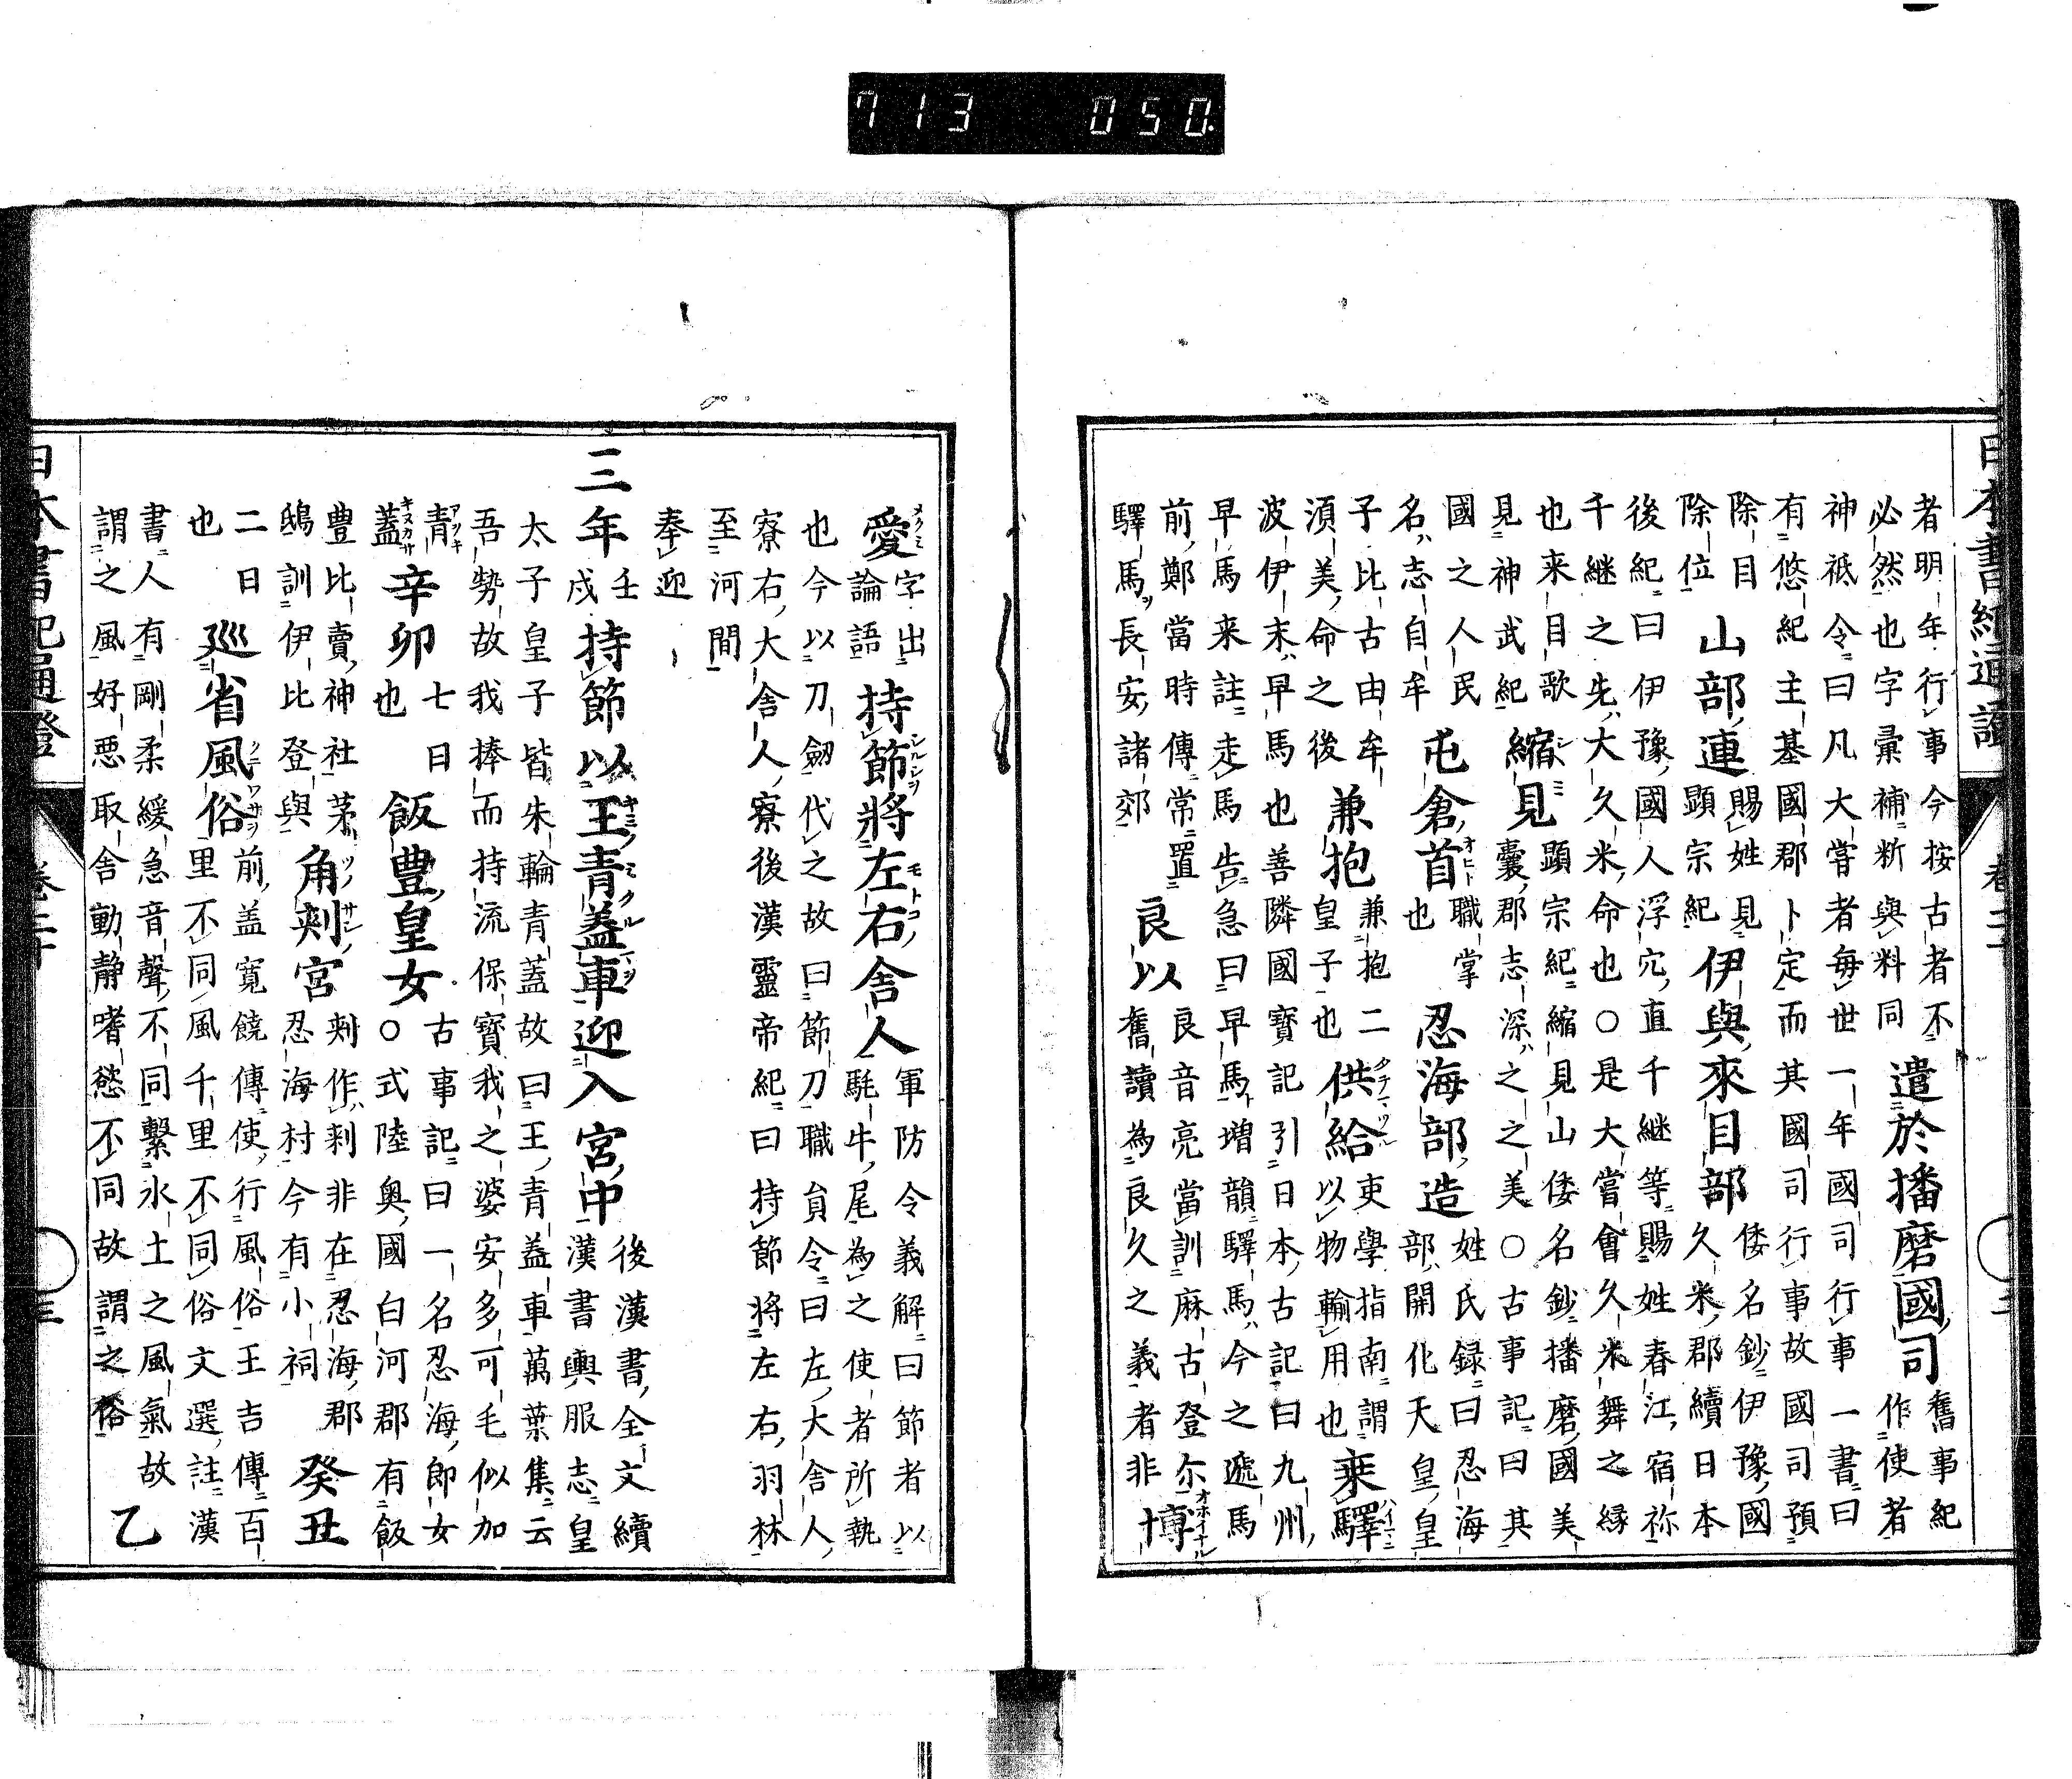 713 050
日本書紀通證
卷二十
者明年行事今按古者不
必然也字彙補䉼與料同
遣於播磨國司
舊事紀
作使者
神祇令曰凡大嘗者毎世一年國司行事一書曰
有悠紀主基國郡卜定而其國司行事故國司預
除目
除位
山部連
賜姓見
顕宗紀
伊與來目部
倭名鈔伊豫國
久米郡續日本
後紀曰伊豫國人浮穴直千継等賜姓春江宿祢
千継之先大久米命也○是大嘗會久米舞之縁
也来目歌
見神武紀
縮見
顕宗紀縮見山倭名鈔播磨國美
囊郡志深之之美○古事記曰其
國之人民
名志自牟
屯倉首
職掌
也
忍海部造
姓氏録曰忍海
部開化天皇皇
子比古由牟
湏美命之後
兼抱
兼抱二
皇子也
供給
吏學指南謂
以物輸用也
乗驛
波伊末早馬也善隣國寳記引日本古記曰九州
早馬来註走馬告急曰早馬増韻驛馬今之遞馬
前鄭當時傳常置
驛馬長安諸郊
良以
良音亮當訓麻古登尓
舊讀為良久之義者非
博
愛
字出
論語
持節將左右舍人
軍防令義解曰節者以
髦牛尾為之使者所執
也今以刀劔代之故曰節刀職員令曰左大舍人
寮右大舍人寮後漢靈帝紀曰持節將左右羽林
至河間
奉迎
三年
壬
戌
持節以王青蓋車迎入宮中
後漢書全文續
漢書輿服志皇
太子皇子皆朱輪青蓋故曰王青蓋車萬葉集云
吾勢故我捧而持流保寳我之婆安多可毛似加
青
蓋
辛卯
七日
也
飯豊皇女
古事記曰一名忍海郎女
○式陸奥國白河郡有飯
豊比賣神社茅
鴟訓伊比登與
角刾宮
刾作刺非在忍海郡
忍海村今有小祠
癸丑
二日
也
巡省風俗
前蓋寛饒傳使行風俗王吉傳百
里不同風千里不同俗文選註漢
書人有剛柔緩急音聲不同繋水土之風氣故
謂之風好悪取舍動静嗜慾不同故謂之俗
乙
日本書紀通證
卷二十
三